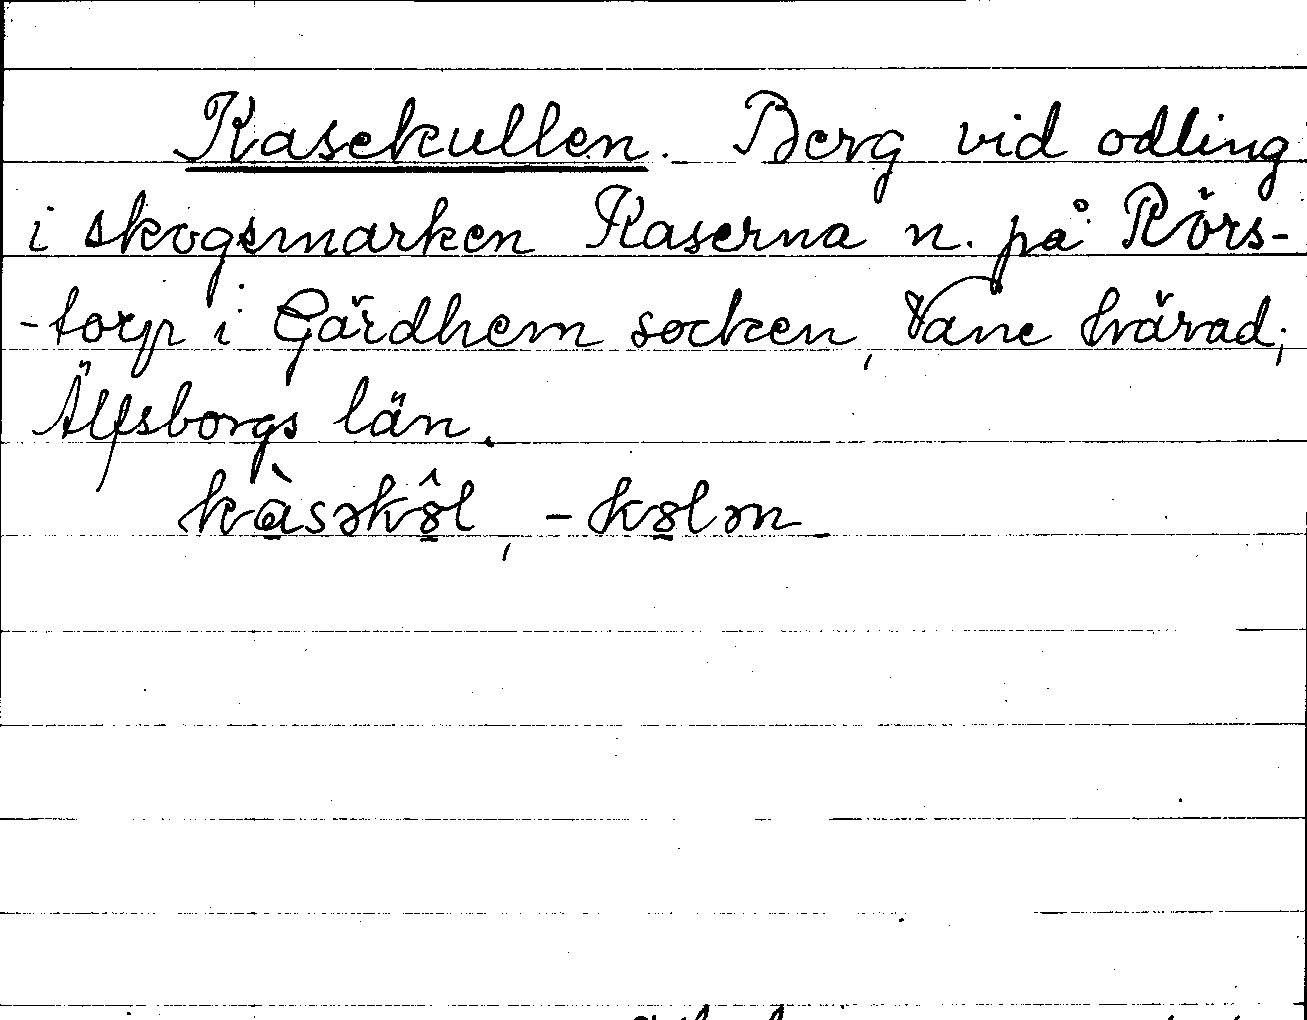 Kasekullen. Berg vid odling
i skogsmarken Kaserna n. på Rörs-
-torp i Gärdhem socken, Vane härad,
Älfsborgs län.
kàsəkôl, -koləm